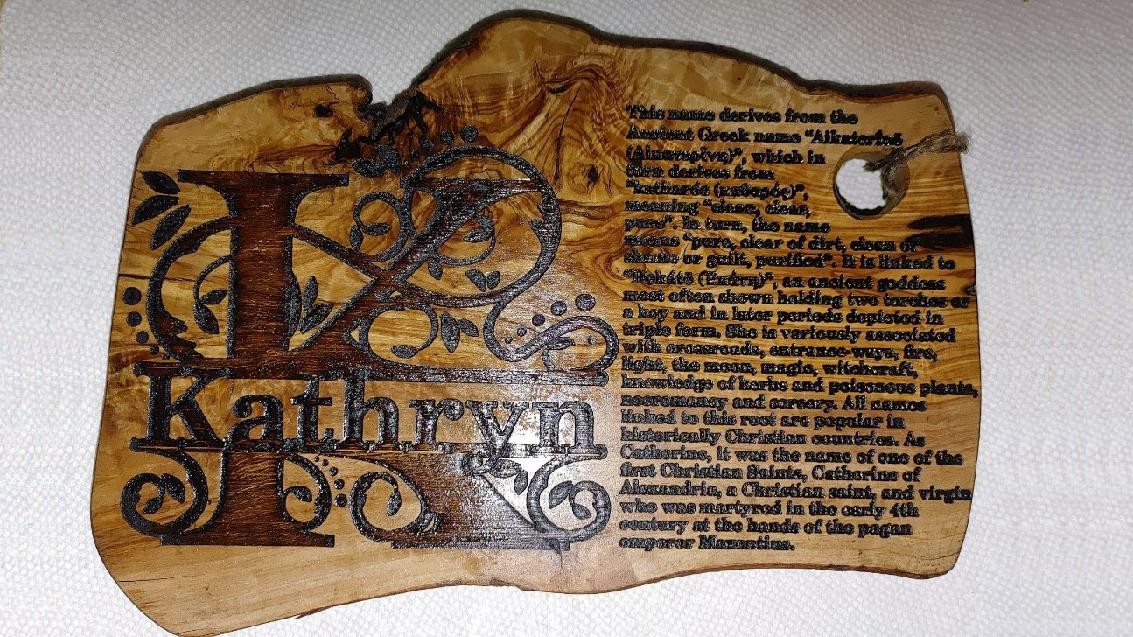 K
Kathryn
This name derives from the
Ancient Greek name "Aikaterinē
(Αικατερίνη)", which in
turn derives from
"katharós (καθαρός)",
meaning "clean, clear,
pure". In turn, the name
means "pure, clear of dirt, clean of
shame or guilt, purified". It is linked to
"Hekátē (Εκάτη)", an ancient goddess
most often shown holding two torches or
a key and in later periods depicted in
triple form. She is variously associated
with crossroads, entrance-ways, fire,
light, the moon, magic, witchcraft,
knowledge of herbs and poisonous plants,
necromancy and sorcery. All names
linked to this root are popular in
historically Christian countries. As
Catherine, it was the name of one of the
first Christian Saints, Catherine of
Alexandria, a Christian saint, and virgin
who was martyred in the early 4th
century at the hands of the pagan
emperor Maxentius.